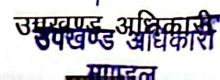 उपखण्ड अधिकारी
उपखण्ड अधिकारी
माण्डल